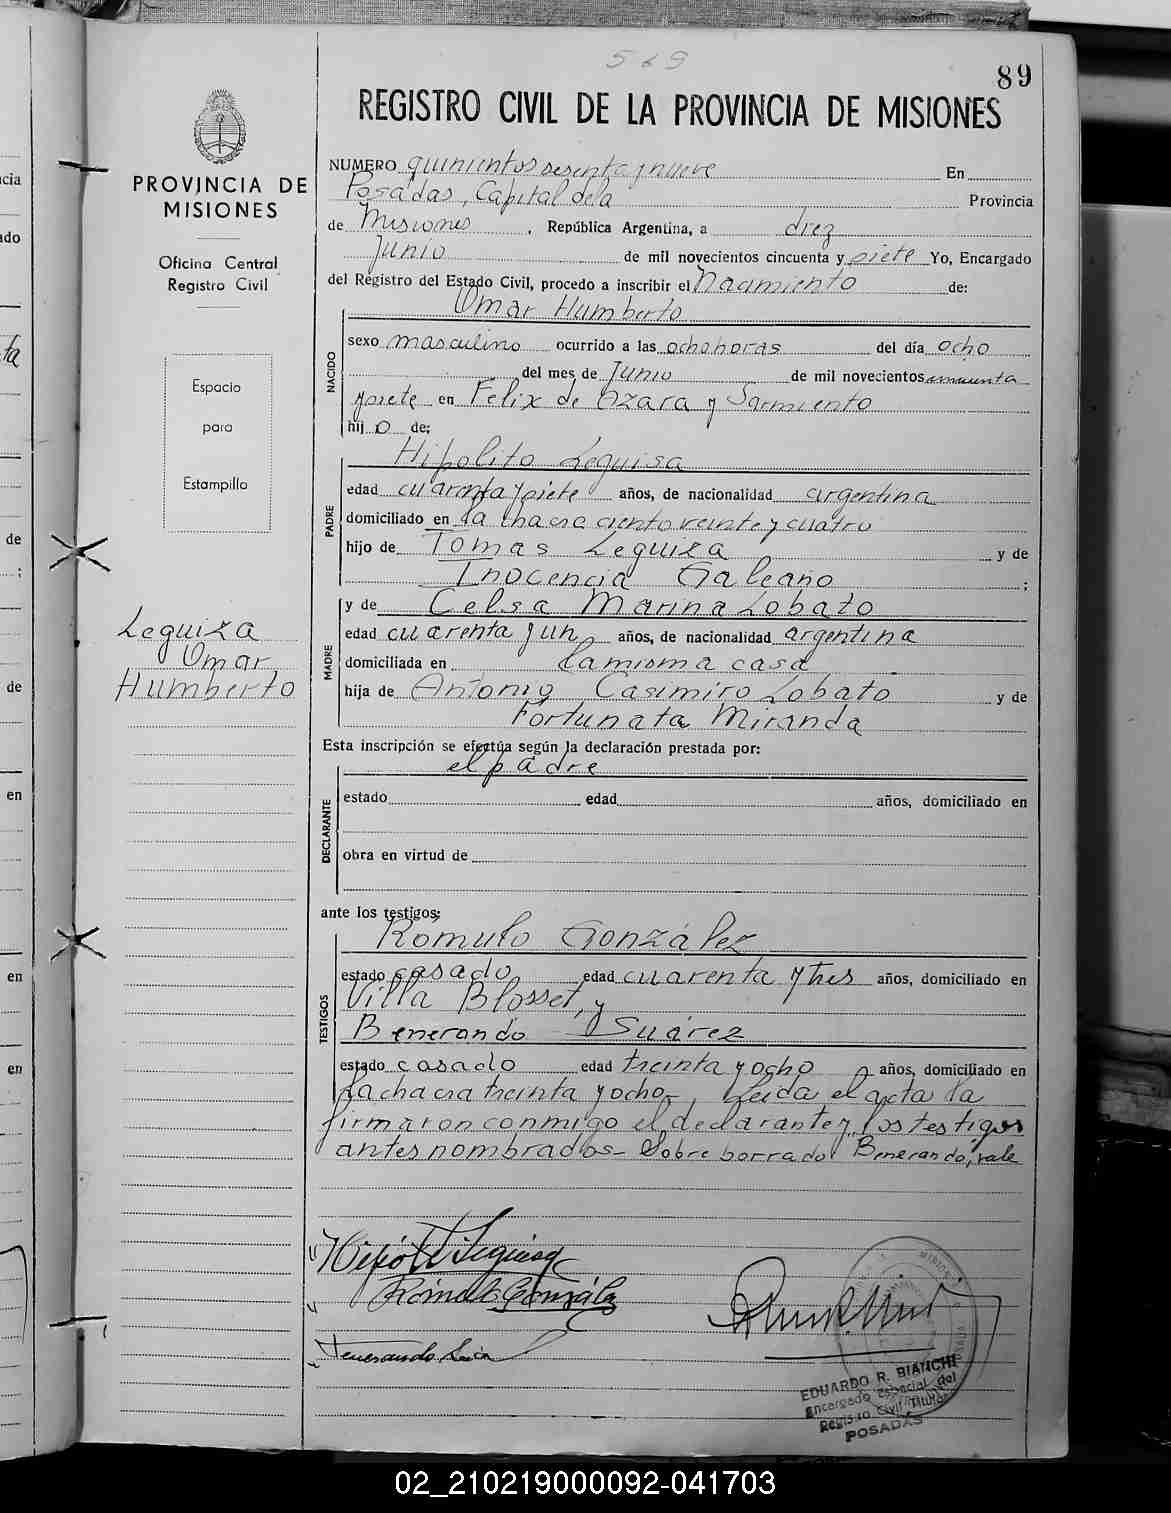 569
89
REGISTRO CIVIL DE LA PROVINCIA DE MISIONES
PROVINCIA DE
MISIONES
Oficina Central
Registro Civil
Espacio
para
Estampilla
Leguiza
Omar
Humberto
NUMERO quinientos sesenta y nueve En
Posadas, Capital de la Provincia
de Misiones, República Argentina, a diez
Junio de mil novecientos cincuenta y siete Yo, Encargado
del Registro del Estado Civil, procedo a inscribir el Nacimiento de:
Omar Humberto
NACIDO
sexo masculino ocurrido a las ocho horas del día ocho
del mes de Junio de mil novecientos cincuenta
y siete en Felix de Azara y Sarmiento
hij o de:
Hipolito Leguisa
PADRE
edad cuarenta y siete años, de nacionalidad argentina
domiciliado en la chacra ciento veinte y cuatro
hijo de Tomas Leguiza y de
Inocencia Galeano ;
y de Celsa Marina Lobato
MADRE
edad cuarenta y un años, de nacionalidad argentina
domiciliada en la misma casa
hija de Antonio Casimiro Lobato y de
Fortunata Miranda
Esta inscripción se efectúa según la declaración prestada por:
el padre
DECLARANTE
estado edad años, domiciliado en
obra en virtud de
ante los testigos:
Rómulo González
TESTIGOS
estado casado edad cuarenta y tres años, domiciliado en
Villa Blosset, y
Benerando Suárez
estado casado edad treinta y ocho años, domiciliado en
la chacra treinta y ocho, Leida el acta la
firmaron conmigo el declarante y los testigos
antes nombrados- Sobre borrado Benerando, vale
Hipólito Leguisa
Rómulo González
EDUARDO R. BIANCHI
Encargado Especial del
Registro Civil Titular
POSADAS
cia
ado
ta
de
;
de
en
en
en
02_210219000092-041703